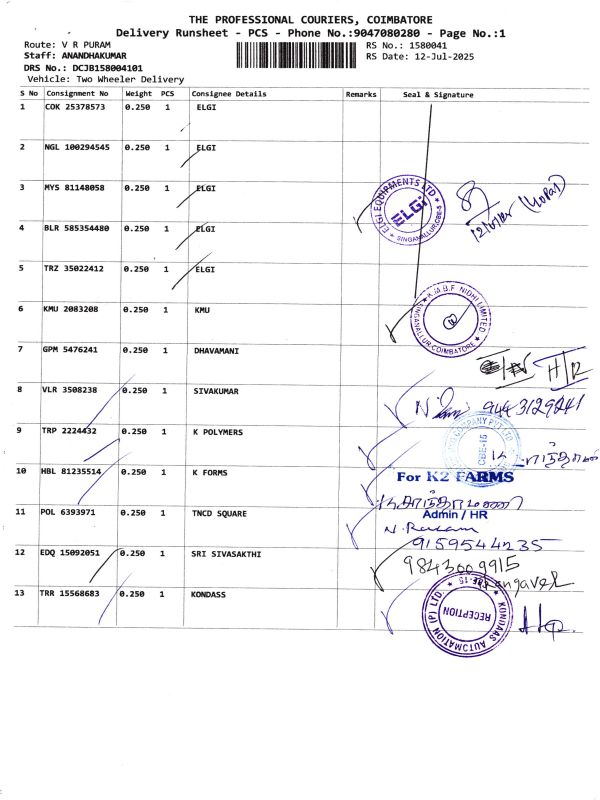 THE PROFESSIONAL COURIERS, COIMBATORE
Delivery Runsheet - PCS - Phone No.:9047080280 - Page No.:1
Route: V R PURAM
RS No.: 1580041
Staff: ANANDHAKUMAR
RS Date: 12-Jul-2025
DRS No.: DCJB158004101
Vehicle: Two Wheeler Delivery
S No Consignment No Weight PCS Consignee Details Remarks Seal & Signature
1 COK 25378573 0.250 1 ELGI
2 NGL 100294545 0.250 1 ELGI
3 MYS 81148058 0.250 1 ELGI
ELGI EQUIPMENTS LTD
ELGi
SINGANALLUR, CBE-5
4 BLR 585354480 0.250 1 ELGI
5 TRZ 35022412 0.250 1 ELGI
6 KMU 2083208 0.250 1 KMU
K.M.B.F. NIDHI LIMITED
SINGANALLUR, COIMBATORE
7 GPM 5476241 0.250 1 DHAVAMANI
H/R
8 VLR 3508238 0.250 1 SIVAKUMAR
9443129241
9 TRP 2224432 0.250 1 K POLYMERS
COMPANY PVT LTD
CBE-15
10 HBL 81235514 0.250 1 K FORMS
For K2 FARMS
11 POL 6393971 0.250 1 TNCD SQUARE
Admin / HR
9159544235
12 EDQ 15092051 0.250 1 SRI SIVASAKTHI
9843009915
13 TRR 15568683 0.250 1 KONDASS
KONDAAS AUTOMATION (P) LTD.
RECEPTION